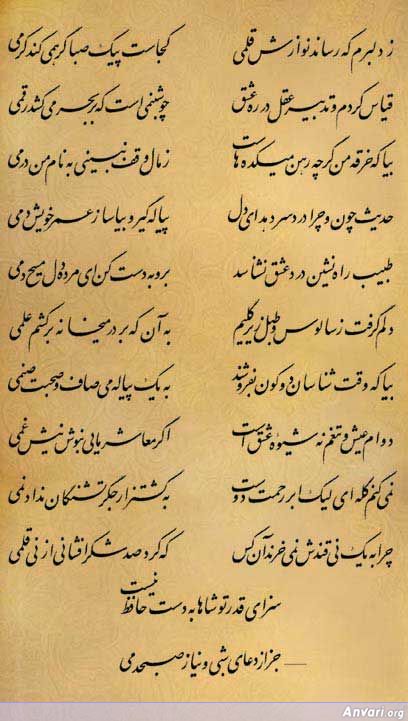 ز دلبرم که رساند نوازش قلمی کجاست پیک صبا گر همی کند کرمی
قیاس کردم و تدبیر عقل در ره عشق چو شبنمی است که بر بحر می کشد رقمی
بیا که خرقه من گرچه رهن میکده هاست ز مال وقف نبینی به نام من درمی
حدیث چون و چرا درد سر دهد ای دل پیاله گیر و بیاسا ز عمر خویش دمی
طبیب راه نشین درد عشق نشناسد برو به دست کن ای مرده دل مسیح دمی
دلم گرفت ز سالوس و طبل زیر گلیم به آن که بر در میخانه بر کشم علمی
بیا که وقت شناسان دو کون بفروشند به یک پیاله می صاف و صحبت صنمی
دوام عیش و تنعم نه شیوه عشق است اگر معاشر مایی بنوش نیش غمی
نمی کنم گله ای لیک ابر رحمت دوست به کشتزار جگر تشنگان نداد نمی
چرا به یک نی قندش نمی خرند آن کس که کرد صد شکر افشانی از نی قلمی
سزای قدر تو شاها به دست حافظ نیست
جز از دعای شبی و نیاز صبحدمی
Anvari.org